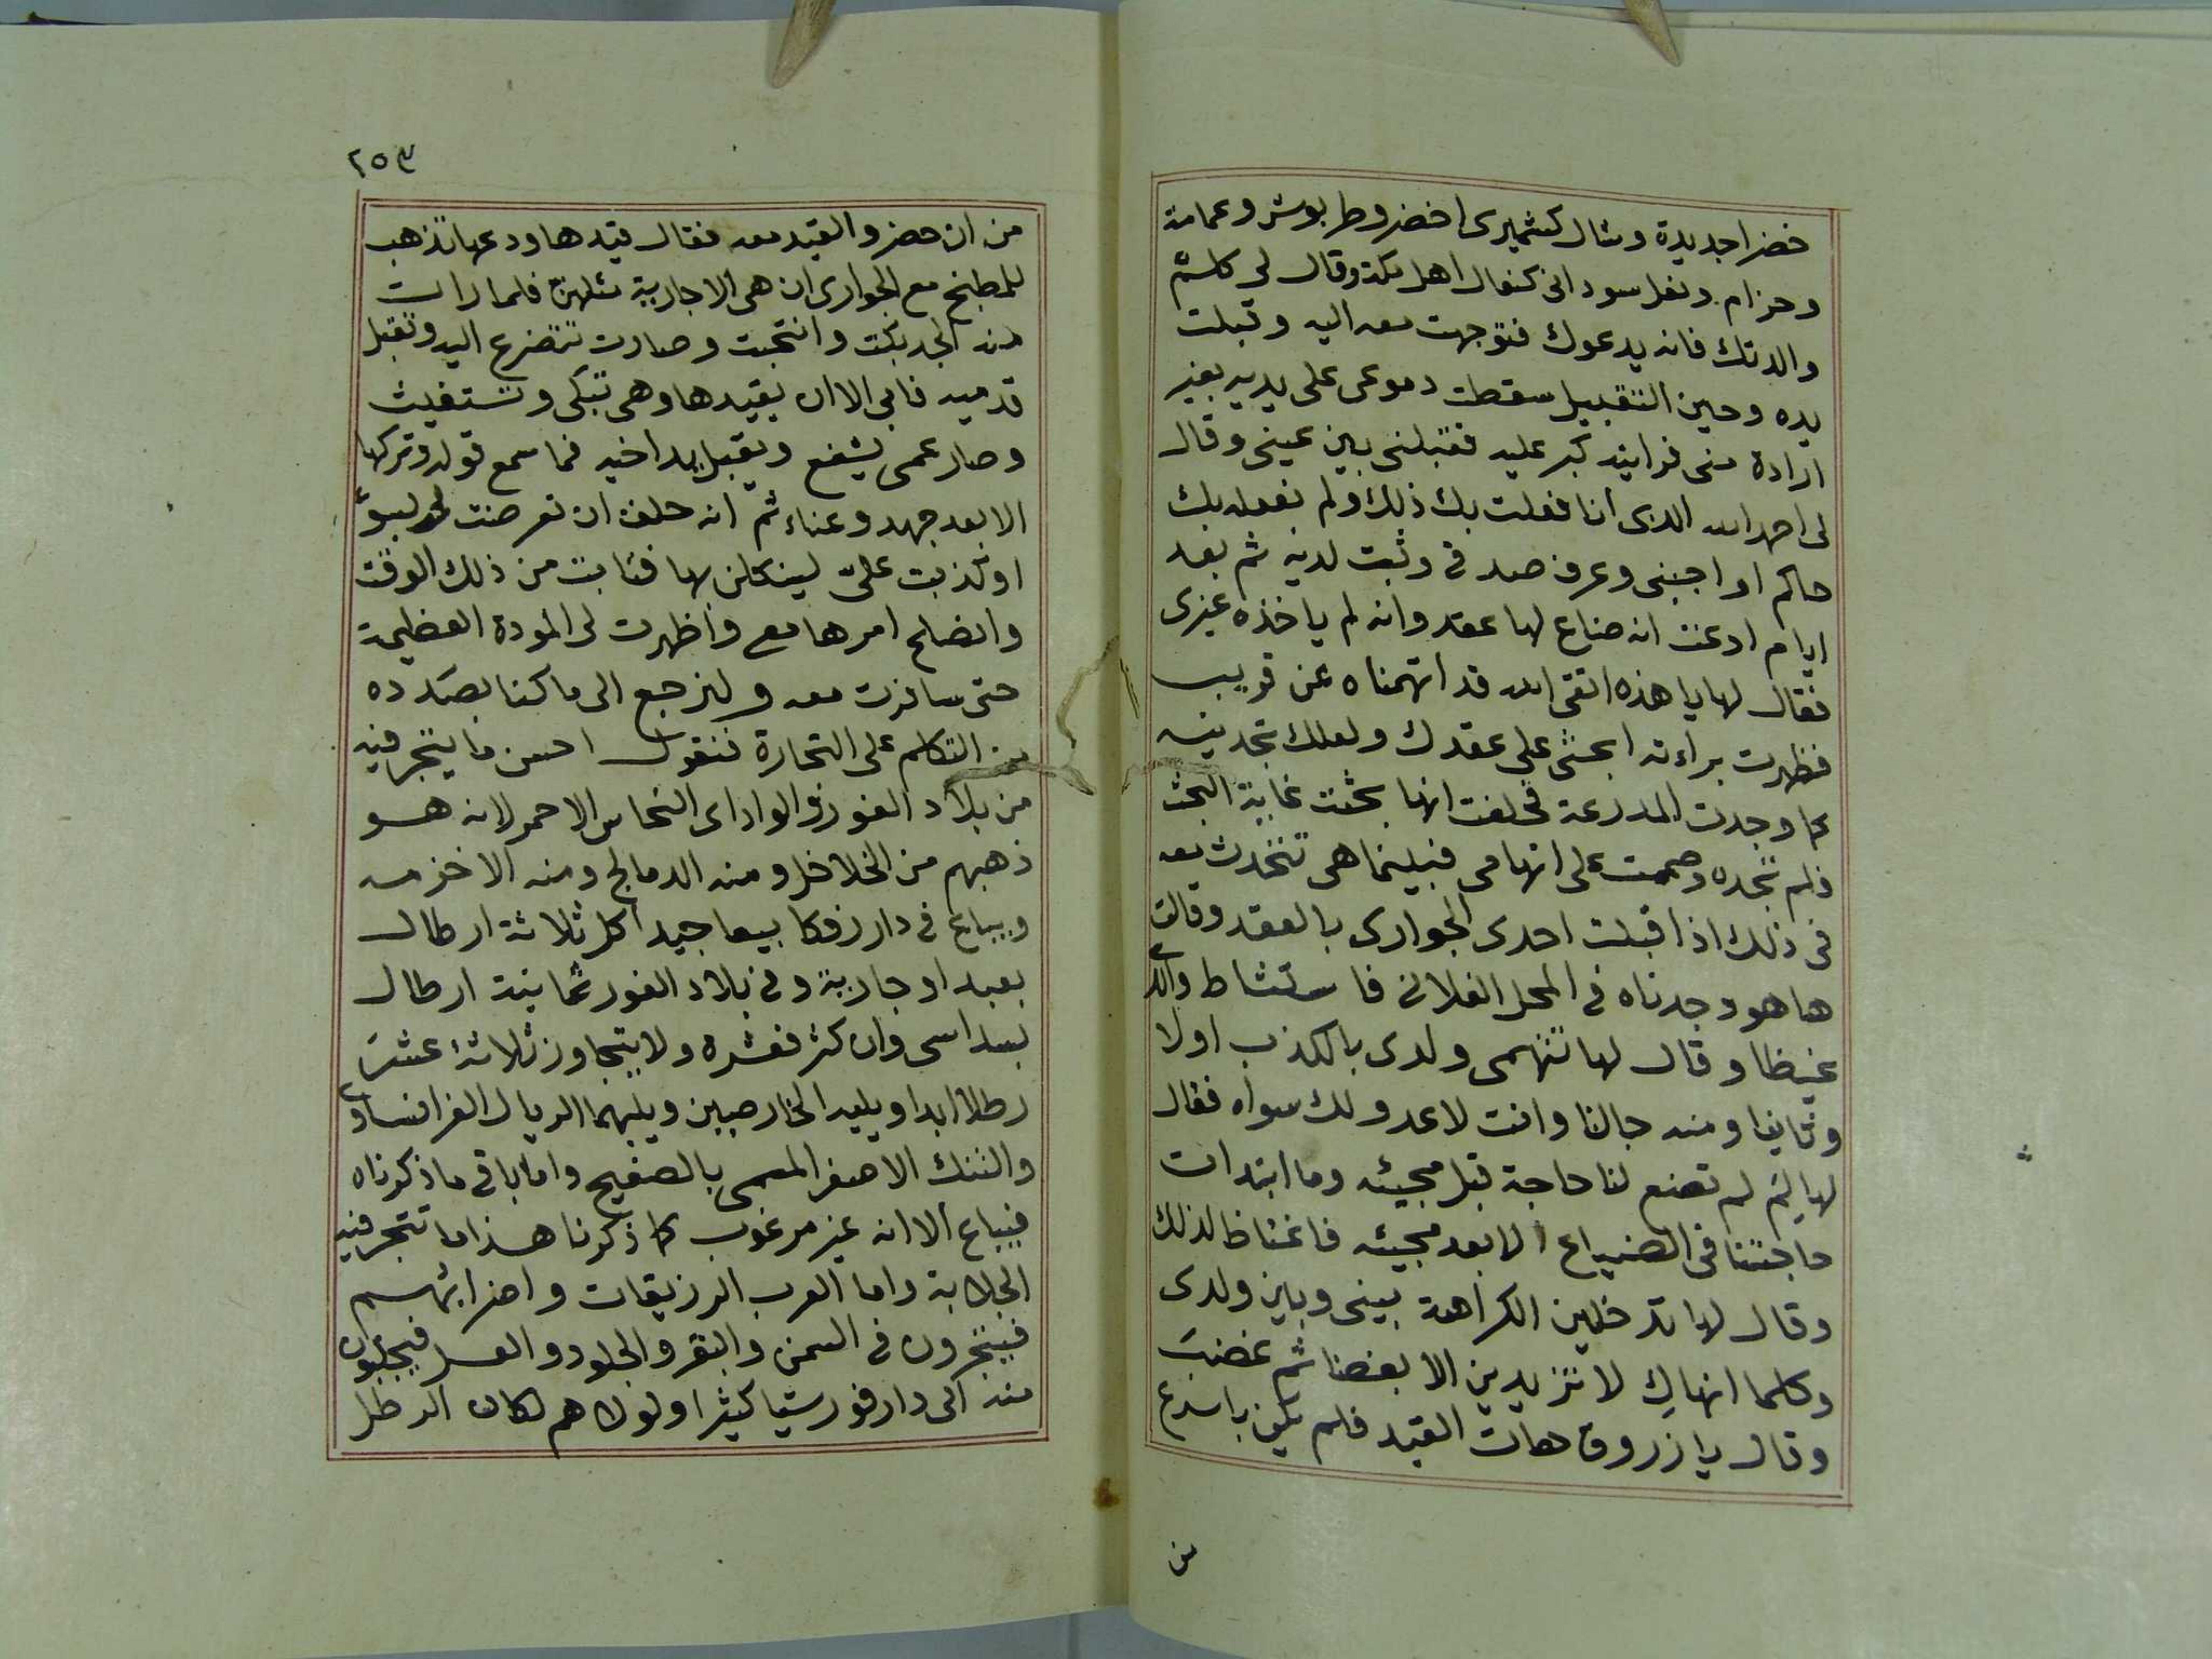 خضرا جديدة وشال كشميرى اخضر وطربوش وعمامة
وحزام ونعل سودانى كنعال اهل مكة وقال لى كلم
والدتك فانه يدعوك فتوجهت معه اليه وقبلت
يده وحين التقبيل سقطت دموعى على يديه بغير
ارادة منى فرايته كبر عليه فقبلنى بين عينى وقال
لى احمد الله الذى انا فعلت بك ذلك ولم يفعله بك
حاكم او اجنبى وعرف صدقى وثبت لديه ثم بعد
ايام ادعت انه ضاع لها عقد وانه لم ياخذه غيرى
فقال لها يا هذه اتقى الله قد اتهمناه عن قريب
فظهرت براءته ابحثى على عقدك ولعلك تجدينه
كما وجدت المدرعة فحلفت انها بحثت غاية البحث
فلم تجده وصممت على اتهامى فبينما هى تتحدث معه
فى ذلك اذ اقبلت احدى الجوارى بالعقد وقالت
ها هو وجدناه فى المحل الفلانى فاستشاط والدى
غيظا وقال لها تتهمى ولدى بالكذب اولا
وثانيا ومنه جالنا وانت لا عدو لك سواه فقال
لها لم لم تضع لنا حاجة قبل مجيئه وما ابتدات
حاجتنا فى الضياع الا بعد مجيئه فاغتاظ لذلك
وقال لها تدخلين الكراهة بينى وبين ولدى
وكلما انهاك لا تزيدين الا بغضا ثم غضب
وقال يا زروق هات القيد فلم يكن باسرع
من
٢٥٣
من ان حضر والقيد معه فقال قيدها ودعها تذهب
للمطبخ مع الجوارى ان هى الا جارية مثلهن فلما رات
منه الجد بكت وانتحبت وصارت تتضرع اليه وتقبل
قدميه فابى الا ان يقيدها وهى تبكى وتستغيث
وصار عمى يشفع ويقبل يد اخيه فما سمع قوله وتركها
الا بعد جهد وعناء ثم انه حلف ان تعرضت لى بسوء
او كذبت على لينكلن بها فتابت من ذلك الوقت
وانصلح امرها معى واظهرت لى المودة العظيمة
حتى سافرت معه ولنرجع الى ما كنا بصدده
من التكلم على التجارة فنقول احسن ما يتجر فيه
من بلاد الفور والواداى النحاس الاحمر لانه هو
ذهبهم من الخلاخل ومنه الدمالج ومنه الاخزمه
ويباع فى دار رنكا بيعا جيدا كل ثلاثة ارطال
بعبد او جارية وفى بلاد الفور ثمانية ارطال
بسداسى وان كثر فعشره ولا يتجاوز ثلاثة عشر
رطلا ابدا ويليه الخارصين ويليهما الريال الفرانساوى
والتنك الاصفر المسمى بالصفيح واما باقى ما ذكرناه
فيباع الا انه غير مرغوب كما ذكرنا هذا ما تتجر فيه
الجلابة واما العرب الرزيقات واضرابهم
فيتجرون فى السمن والبقر والجلود والعسل فيجلبون
منه الى دارفور شيا كثيرا ولولاهم لكان الرطل